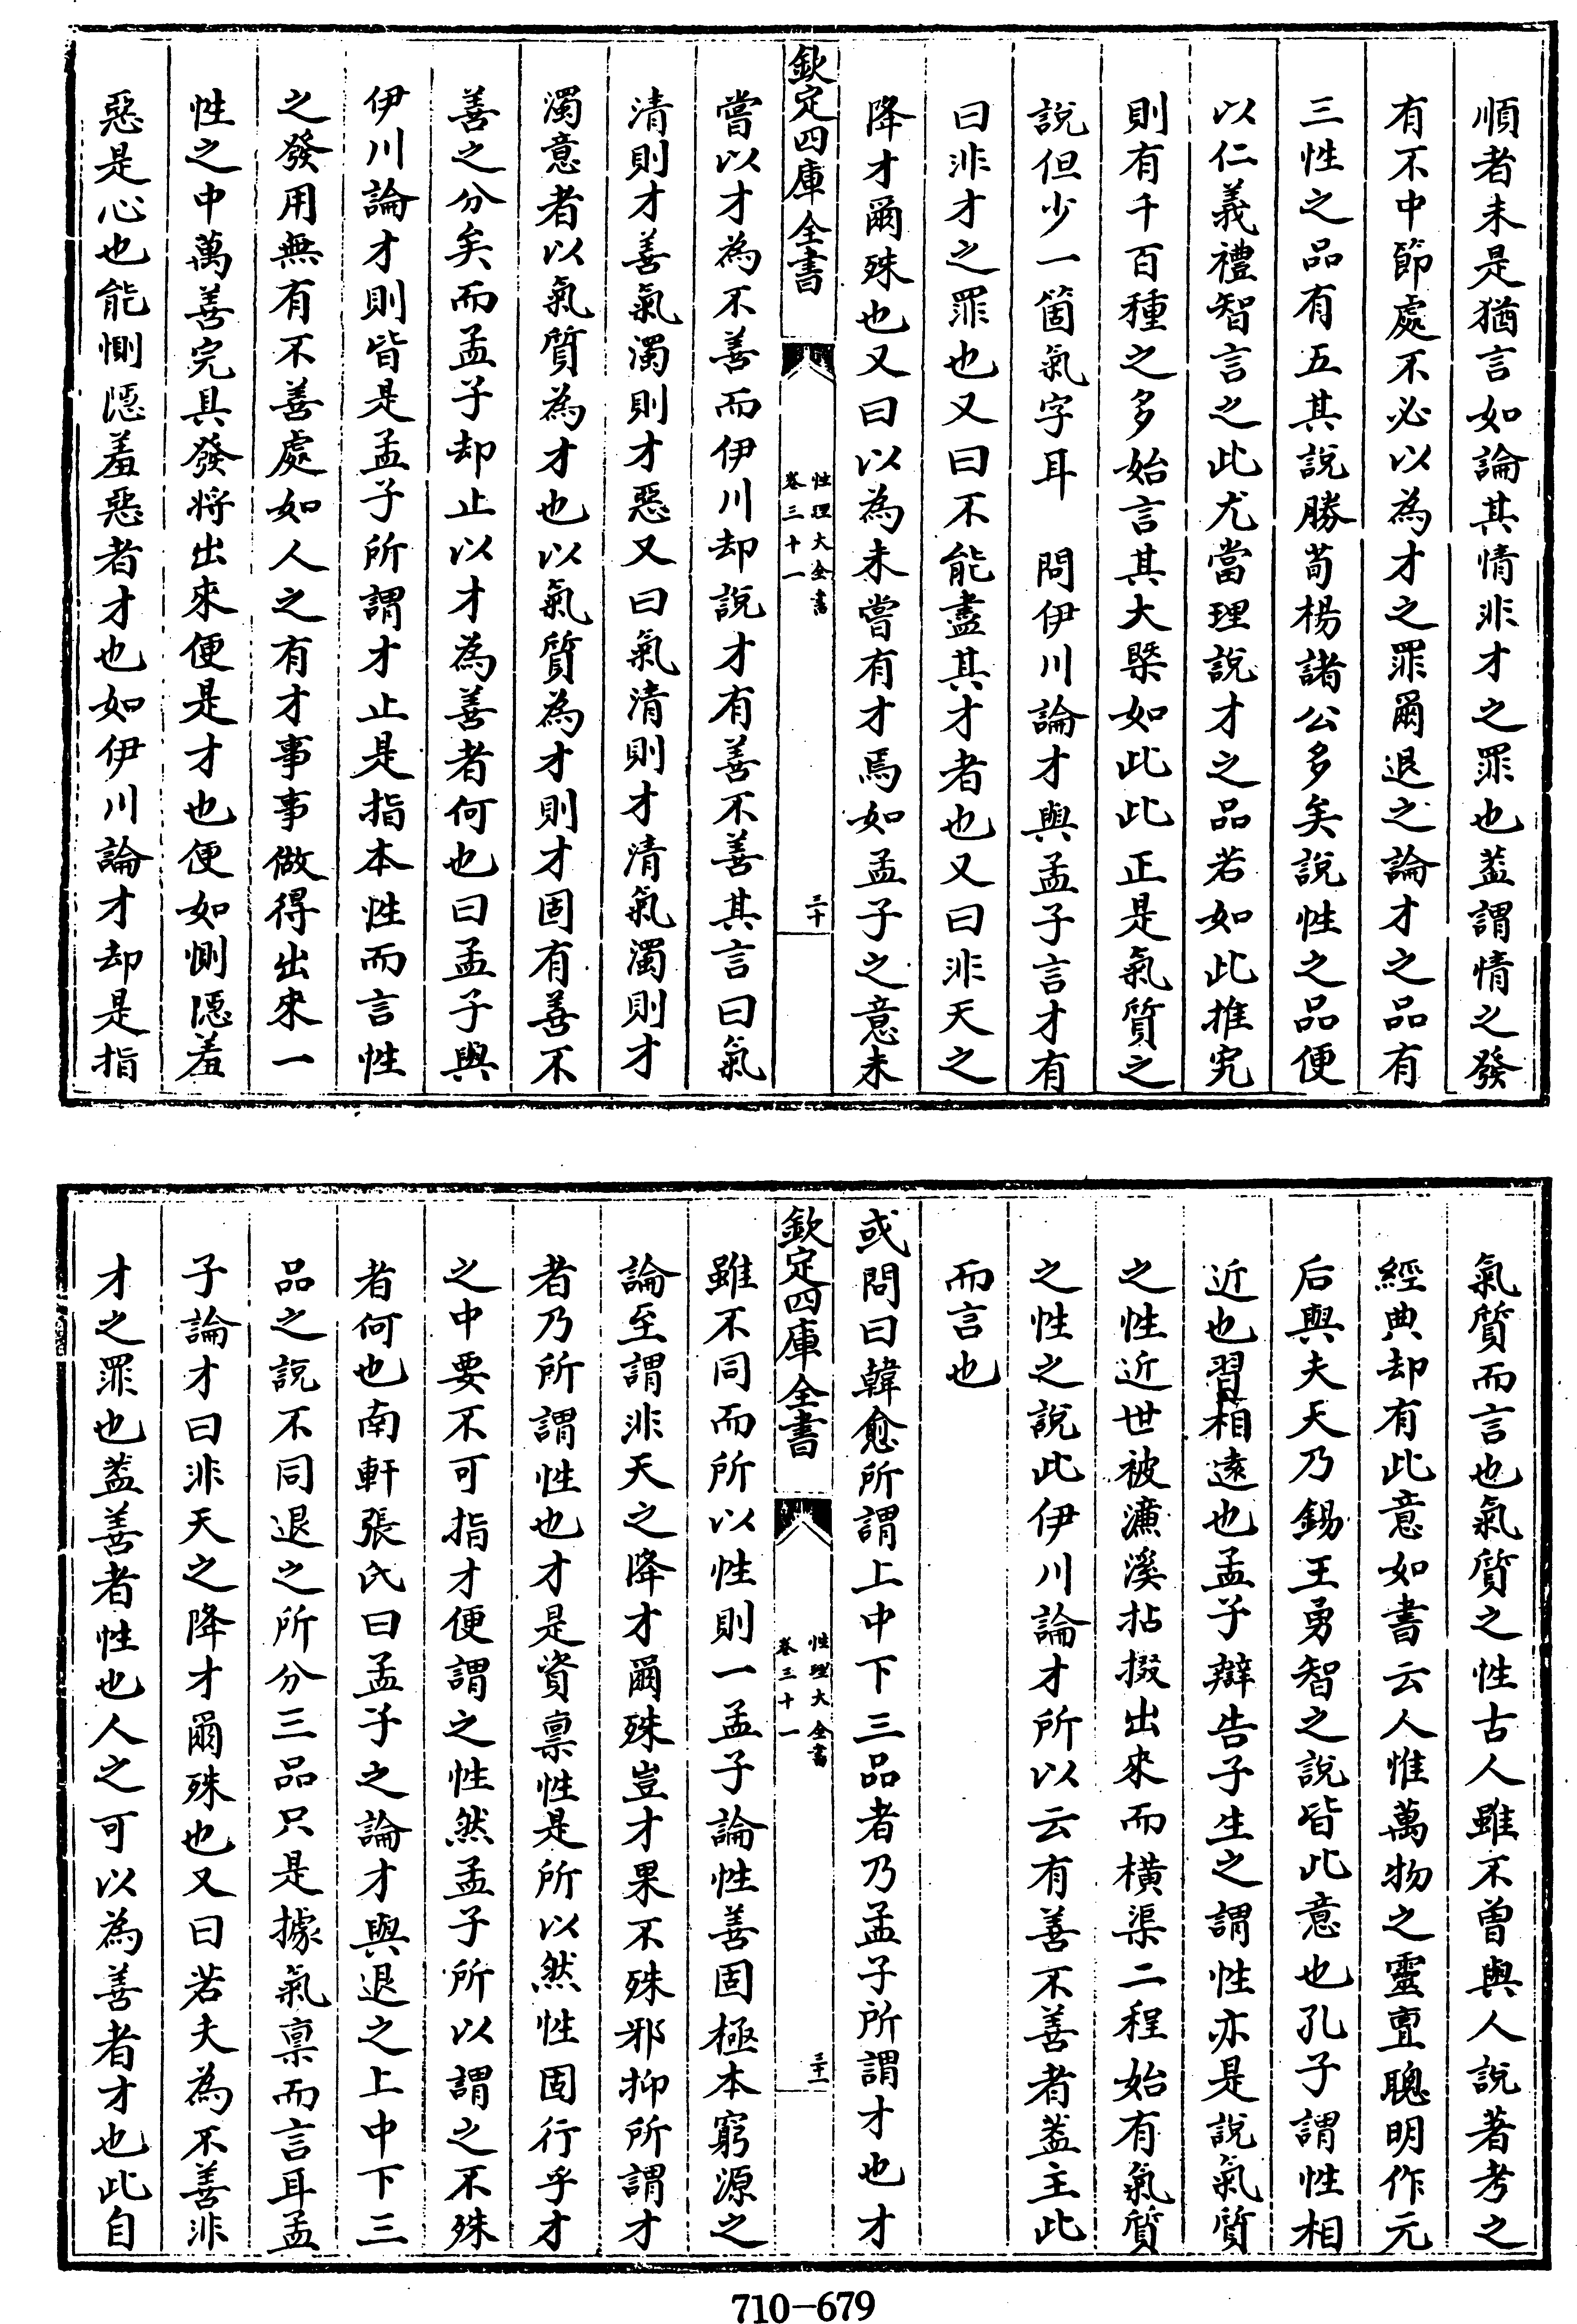 順者未是猶言如論其情非才之罪也蓋謂情之發
有不中節處不必以為才之罪爾退之論才之品有
三性之品有五其說勝荀楊諸公多矣說性之品便
以仁義禮智言之此尤當理說才之品若如此推究
則有千百種之多始言其大槩如此此正是氣質之
說但少一箇氣字耳　問伊川論才與孟子言才有
曰非才之罪也又曰不能盡其才者也又曰非天之
降才爾殊也又曰以為未嘗有才焉如孟子之意未
欽定四庫全書
性理大全書
卷三十一
三十
嘗以才為不善而伊川却說才有善不善其言曰氣
清則才善氣濁則才惡又曰氣清則才清氣濁則才
濁意者以氣質為才也以氣質為才則才固有善不
善之分矣而孟子却止以才為善者何也曰孟子與
伊川論才則皆是孟子所謂才止是指本性而言性
之發用無有不善處如人之有才事事做得出來一
性之中萬善完具發将出來便是才也便如惻隱羞
惡是心也能惻隱羞惡者才也如伊川論才却是指
氣質而言也氣質之性古人雖不曾與人說著考之
經典却有此意如書云人惟萬物之靈亶聰明作元
后與夫天乃錫王勇智之說皆此意也孔子謂性相
近也習相遠也孟子辯告子生之謂性亦是說氣質
之性近世被濂溪拈掇出來而橫渠二程始有氣質
之性之說此伊川論才所以云有善不善者蓋主此
而言也
或問曰韓愈所謂上中下三品者乃孟子所謂才也才
欽定四庫全書
性理大全書
卷三十一
三十一
雖不同而所以性則一孟子論性善固極本窮源之
論至謂非天之降才爾殊豈才果不殊邪抑所謂才
者乃所謂性也才是資禀性是所以然性固行乎才
之中要不可指才便謂之性然孟子所以謂之不殊
者何也南軒張氏曰孟子之論才與退之上中下三
品之說不同退之所分三品只是據氣禀而言耳孟
子論才曰非天之降才爾殊也又曰若夫為不善非
才之罪也蓋善者性也人之可以為善者才也此自
710-679